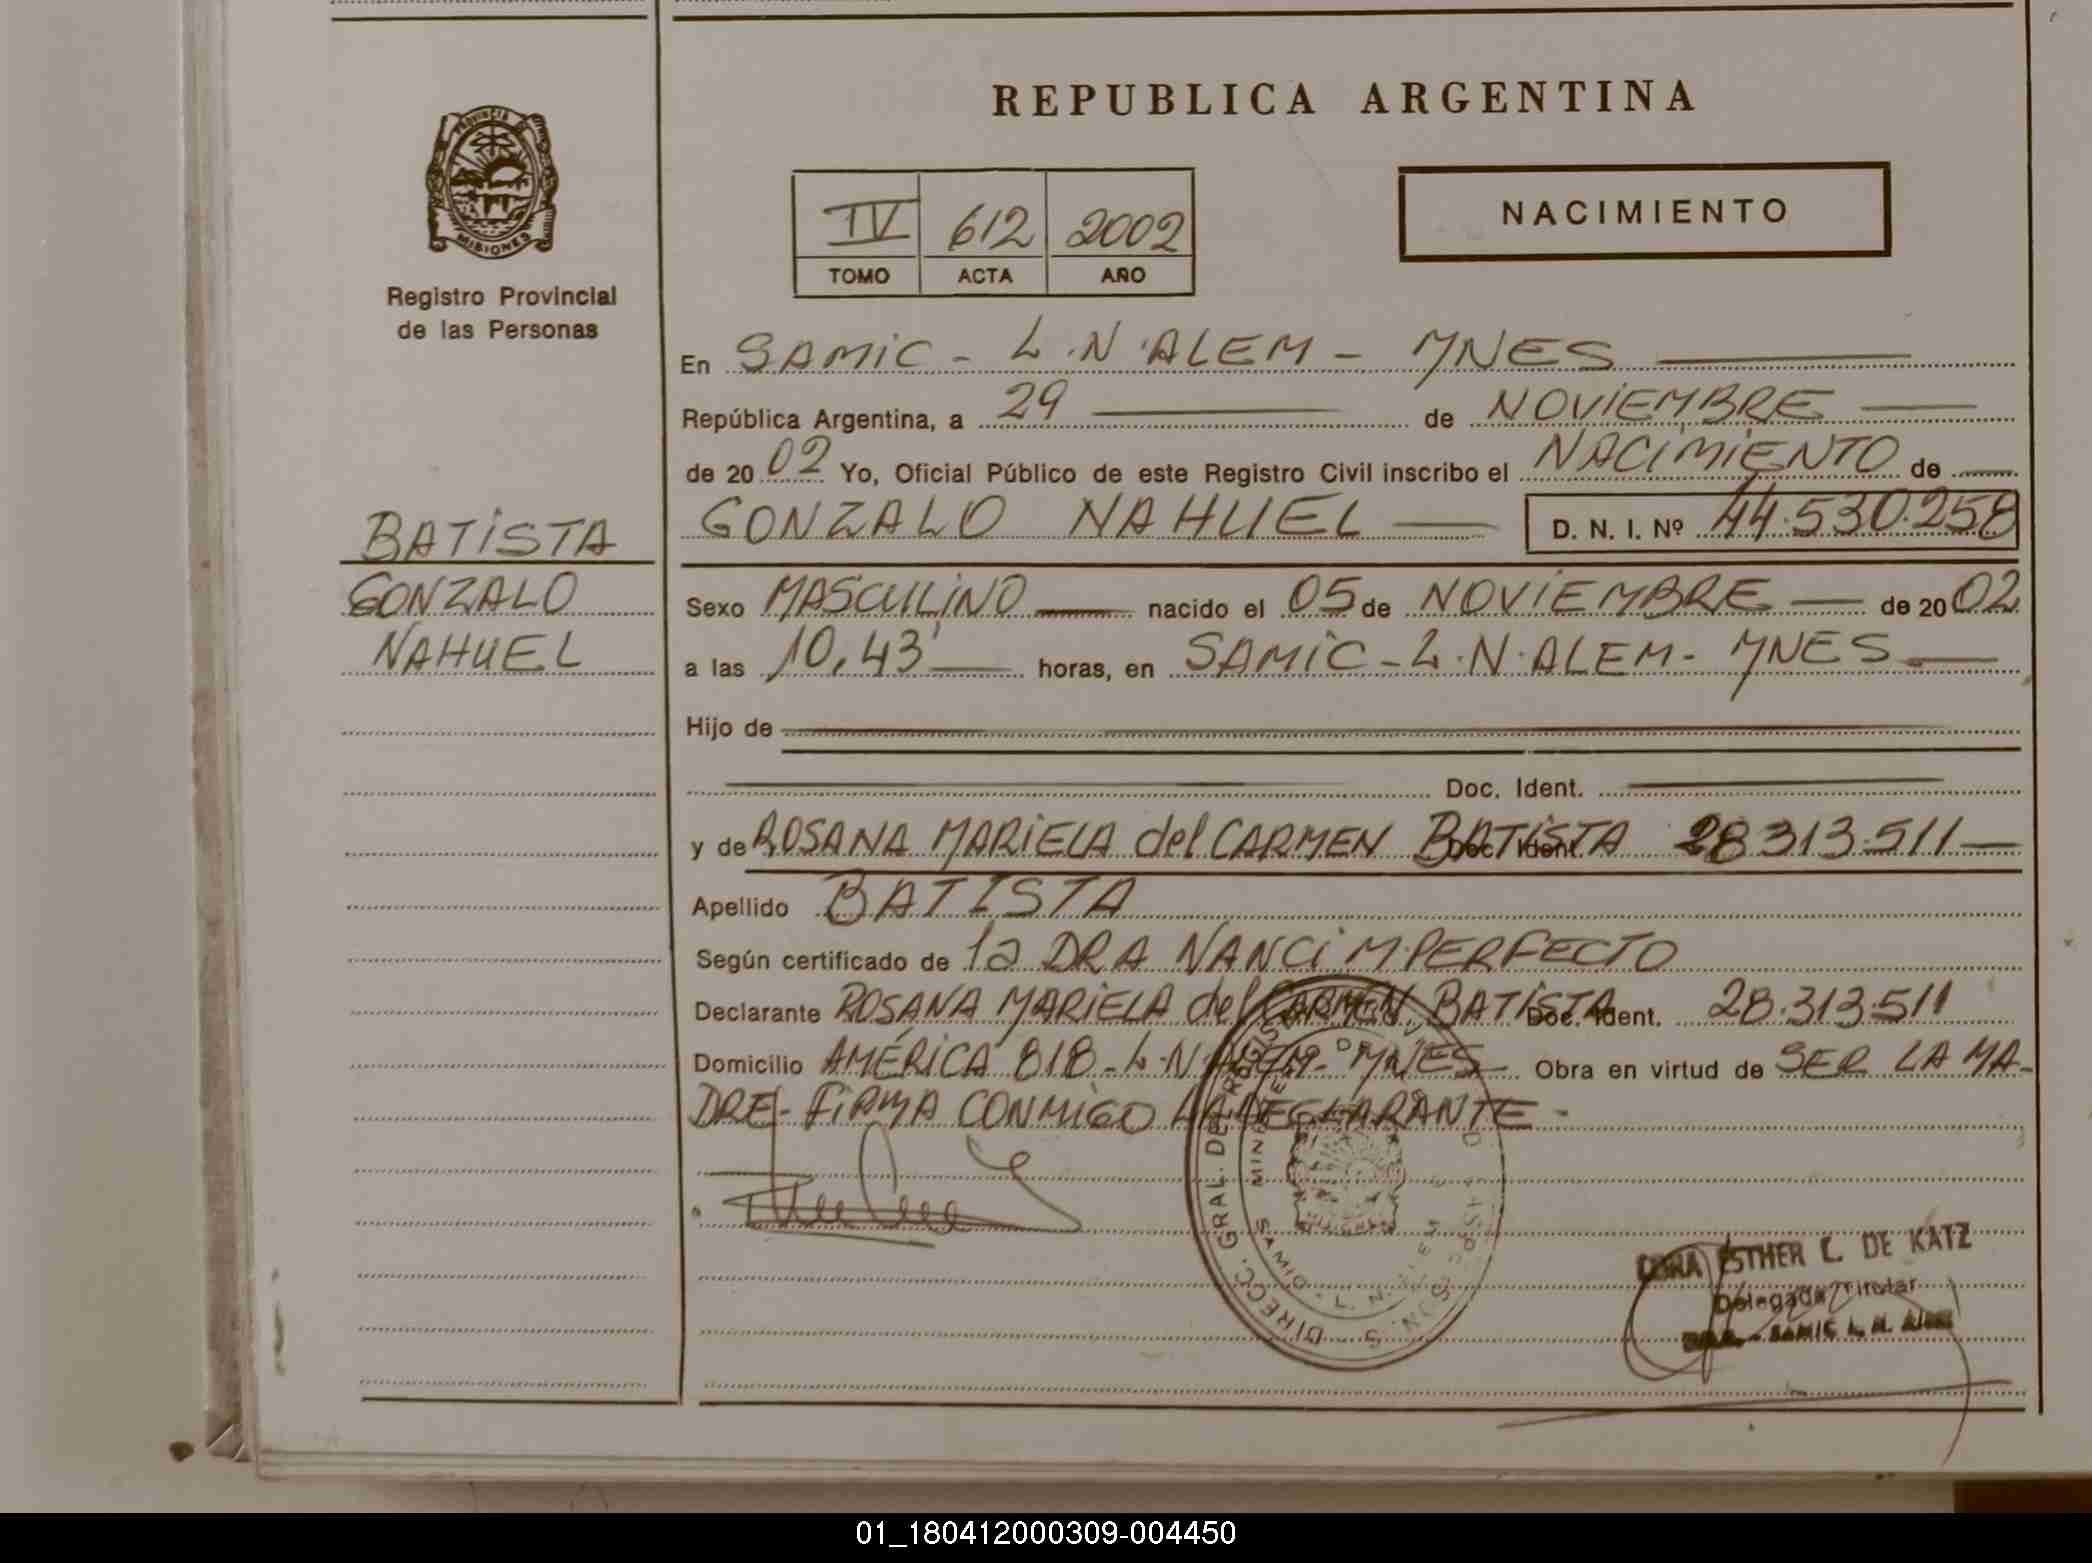 REPUBLICA ARGENTINA
PROVINCIA DE
MISIONES
Registro Provincial
de las Personas
IV 612 2002
TOMO ACTA AÑO
NACIMIENTO
En SAMIC - L.N.ALEM - MNES
República Argentina, a 29 de NOVIEMBRE
de 2002 Yo, Oficial Público de este Registro Civil inscribo el NACIMIENTO de
GONZALO NAHUEL D. N. I. Nº 44.530.258
BATISTA
GONZALO
NAHUEL
Sexo MASCULINO nacido el 05 de NOVIEMBRE de 2002
a las 10,43' horas, en SAMIC - L.N.ALEM - MNES
Hijo de
Doc. Ident.
y de ROSANA MARIELA del CARMEN BATISTA Doc. Ident. 28.313.511
Apellido BATISTA
Según certificado de la DRA NANCI M. PERFECTO
Declarante ROSANA MARIELA del CARMEN BATISTA Doc. Ident. 28.313.511
Domicilio AMÉRICA 818 - L.N.ALEM - MNES Obra en virtud de SER LA MA-
DRE - FIRMA CONMIGO LA DECLARANTE -
DIRECC. GRAL. DE
L. N. ALEM
ESTHER L. DE KATZ
Delegada Titular
SAMIC L. N. ALEM
01_180412000309-004450